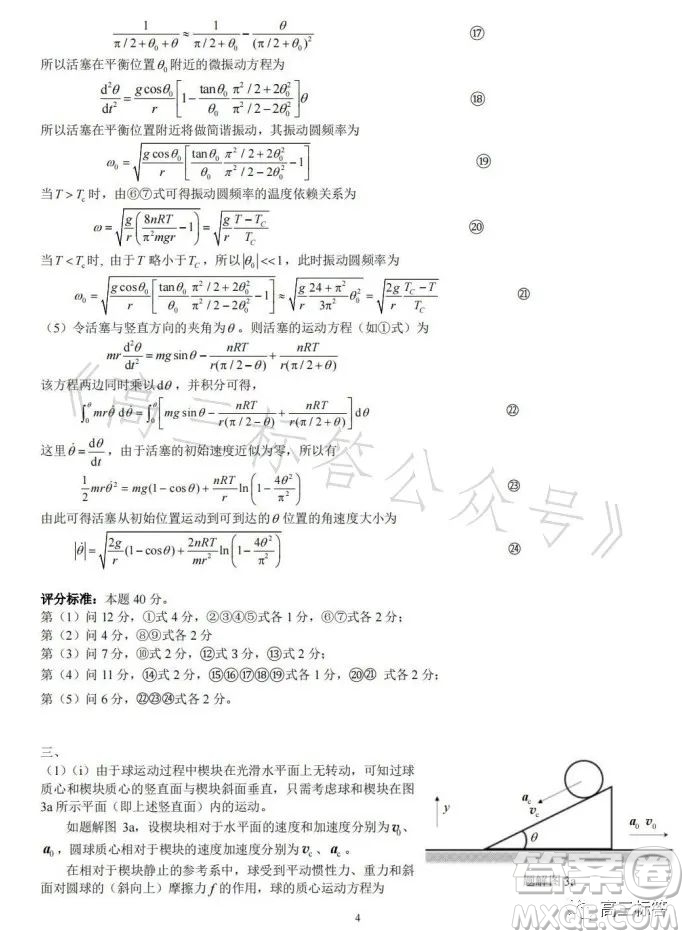 1/(π/2+θ₀+θ) ≈ 1/(π/2+θ₀) − θ/(π/2+θ₀)² ⑰
所以活塞在平衡位置θ₀附近的微振动方程为
d²θ/dt² = (g cosθ₀/r)[1 − (tanθ₀/θ₀)(π²/2+2θ₀²)/(π²/2−2θ₀²)]θ ⑱
所以活塞在平衡位置附近将做简谐振动，其振动圆频率为
ω₀ = √{(g cosθ₀/r)[(tanθ₀/θ₀)(π²/2+2θ₀²)/(π²/2−2θ₀²) − 1]} ⑲
当T>T_c时，由⑥⑦式可得振动圆频率的温度依赖关系为
ω = √{(g/r)(8nRT/(π²mgr) − 1)} = √{(g/r)(T−T_C)/T_C} ⑳
当T<T_c时，由于T略小于T_C，所以|θ₀|<<1，此时振动圆频率为
ω₀ = √{(g cosθ₀/r)[(tanθ₀/θ₀)(π²/2+2θ₀²)/(π²/2−2θ₀²) − 1]} ≈ √{(g/r)((24+π²)/(3π²))θ₀²} = √{(2g/r)(T_C−T)/T_C} ㉑
（5）令活塞与竖直方向的夹角为θ。则活塞的运动方程（如①式）为
mr d²θ/dt² = mg sinθ − nRT/(r(π/2−θ)) + nRT/(r(π/2+θ))
该方程两边同时乘以dθ，并积分可得，
∫₀^θ mrθ̇ dθ̇ = ∫₀^θ [mg sinθ − nRT/(r(π/2−θ)) + nRT/(r(π/2+θ))]dθ ㉒
这里θ̇ = dθ/dt，由于活塞的初始速度近似为零，所以有
(1/2)mrθ̇² = mg(1−cosθ) + (nRT/r) ln(1 − 4θ²/π²) ㉓
由此可得活塞从初始位置运动到可到达的θ位置的角速度大小为
|θ̇| = √{(2g/r)(1−cosθ) + (2nRT/(mr²)) ln(1 − 4θ²/π²)} ㉔
评分标准：本题40分。
第（1）问12分，①式4分，②③④⑤式各1分，⑥⑦式各2分；
第（2）问4分，⑧⑨式各2分
第（3）问7分，⑩式2分，⑫式3分，⑬式各2分；
第（4）问11分，⑭式2分，⑮⑯⑰⑱⑲式各1分，⑳㉑ 式各2分；
第（5）问6分，㉒㉓㉔式各2分。
三、
（1）（i）由于球运动过程中楔块在光滑水平面上无转动，可知过球
质心和楔块质心的竖直面与楔块斜面垂直，只需考虑球和楔块在图
3a所示平面（即上述竖直面）内的运动。
如题解图3a，设楔块相对于水平面的速度和加速度分别为v₀、
a₀，圆球质心相对于楔块的速度加速度分别为v_c、a_c。
在相对于楔块静止的参考系中，球受到平动惯性力、重力和斜
面对圆球的（斜向上）摩擦力f的作用，球的质心运动方程为
y
a_c
v_c
θ
a₀ v₀
题解图3a
4
《高三标答公众号》
答案圈
高三标答